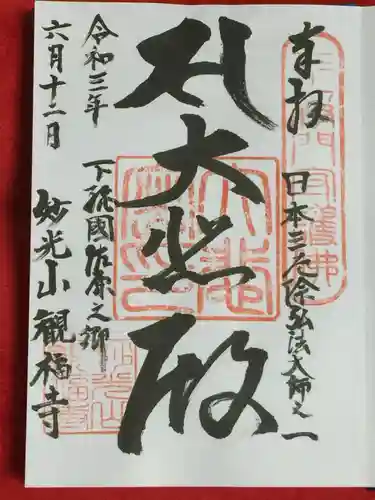 奉拝
日本三厄除弘法大師之一
大悲殿
下総國佐原之郷
令和三年
六月十二日
妙光山観福寺